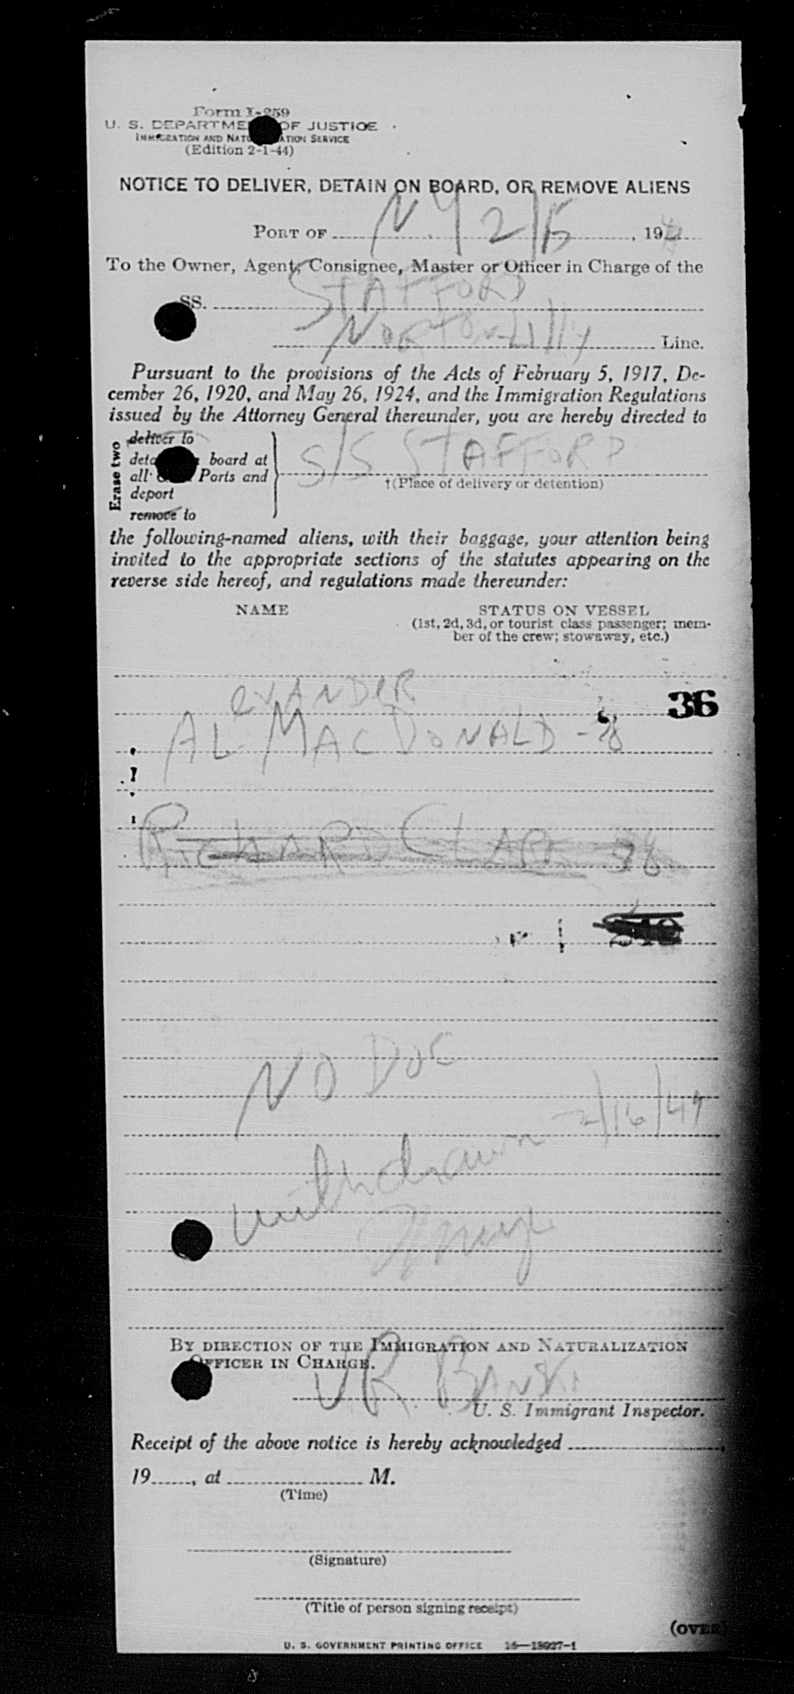 Form I-259
U. S. DEPARTMENT OF JUSTICE
IMMIGRATION AND NATURALIZATION SERVICE
(Edition 2-1-44)
NOTICE TO DELIVER, DETAIN ON BOARD, OR REMOVE ALIENS
PORT OF N.Y 2/15, 194
To the Owner, Agent, Consignee, Master or Officer in Charge of the
SS. STAFFORD
NORTON-LILLY Line.
Pursuant to the provisions of the Acts of February 5, 1917, De-
cember 26, 1920, and May 26, 1924, and the Immigration Regulations
issued by the Attorney General thereunder, you are hereby directed to
Erase two
deliver to
board at
all Ports and
deport
remove to
S/S STAFFORD
†(Place of delivery or detention)
the following-named aliens, with their baggage, your attention being
invited to the appropriate sections of the statutes appearing on the
reverse side hereof, and regulations made thereunder:
NAME STATUS ON VESSEL
(1st, 2d, 3d, or tourist class passenger; mem-
ber of the crew; stowaway, etc.)
EXANDER
36
AL MACDONALD -
RICHARD CLAPP
NO DOC
withdrawn 2/16/47
BY DIRECTION OF THE IMMIGRATION AND NATURALIZATION
OFFICER IN CHARGE.
U. S. Immigrant Inspector.
Receipt of the above notice is hereby acknowledged
19, at M.
(Time)
(Signature)
(Title of person signing receipt)
(OVER)
U. S. GOVERNMENT PRINTING OFFICE 16—13927-1